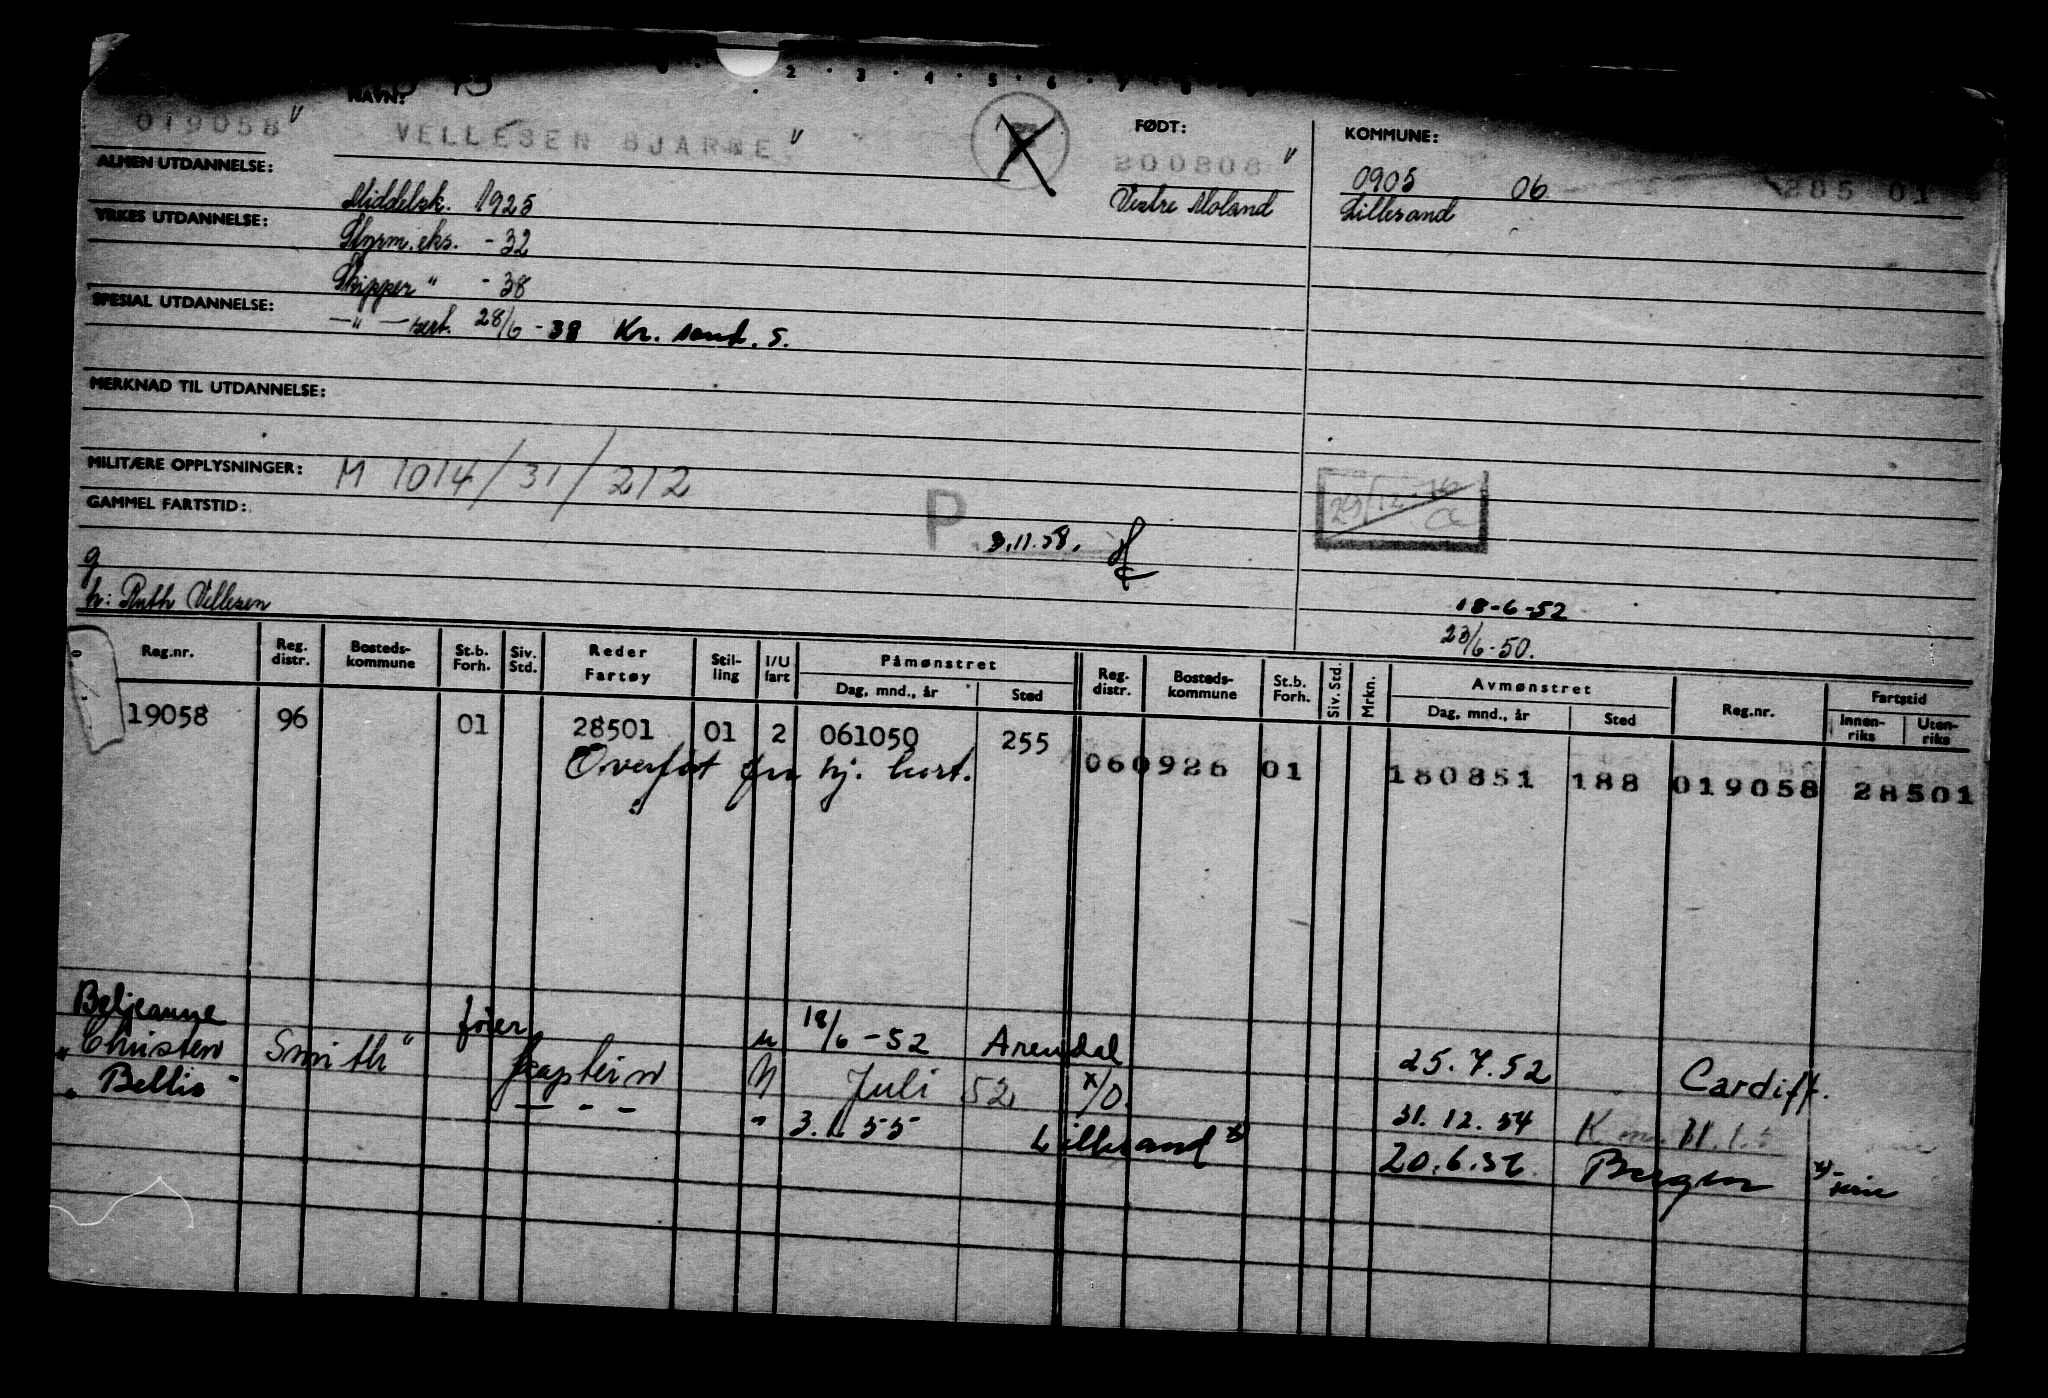 2 · 3 · 4 · 5 · 6 · 7 · 8
NAVN:
019058 v
VELLESEN BJARNE v
FØDT:
200808 v
Vestre Moland
KOMMUNE:
0905 06
285 01
Lillesand
ALMEN UTDANNELSE:
Middelsk. 1925
YRKES UTDANNELSE:
Styrm. eks. - 32
Skipper " - 38
SPESIAL UTDANNELSE:
— " — sert. 28/6 - 38 Kr. sand. S.
MERKNAD TIL UTDANNELSE:
MILITÆRE OPPLYSNINGER: M 1014/31/212
GAMMEL FARTSTID:
P
3.11.58.
g
h: Ruth Vellesen
18-6-52
23/6-50.
Reg.nr. Reg. distr. Bosteds- kommune St.b. Forh. Siv. Std. Reder Fartøy Stil- ling I/U fart Påmønstret Dag, mnd., år Sted Reg. distr. Bosteds- kommune St.b. Forh. Siv. Std. Mrkn. Avmønstret Dag, mnd., år Sted Reg.nr. Fartstid Innen- riks Uten- riks
19058 96 01 28501 01 2 061050 255 060926 01 180851 188 019058 28501
Overført fra hj. kort.
Beljeanne fører u 18/6-52 Arendal 25.7.52 Cardiff.
"Christen Smith" Kaptein Juli 52 x/o. 31.12.54
"Bellis" — - - " 3.1.55 Lillesand x 20.6.56 Bergen